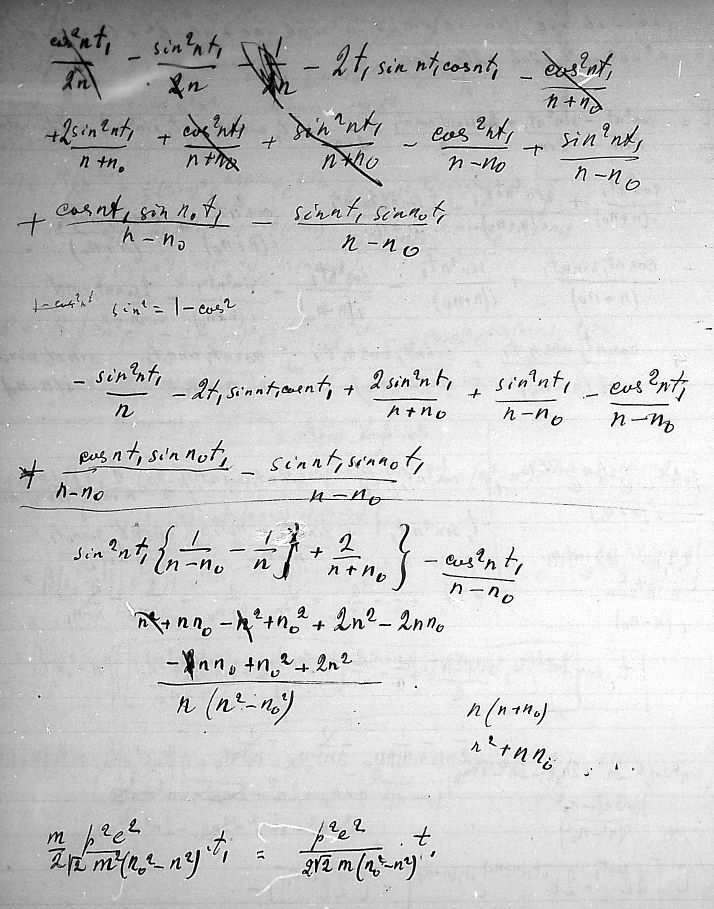 cos²nt₁/2n − sin²nt₁/2n − 1/2n − 2t₁ sin nt₁ cos nt₁ − cos²nt₁/(n+n₀)
+2sin²nt₁/(n+n₀) + cos²nt₁/(n+n₀) + sin²nt₁/(n+n₀) − cos²nt₁/(n−n₀) + sin²nt₁/(n−n₀)
+ cos nt₁ sin n₀t₁/(n−n₀) − sin nt₁ sin n₀t₁/(n−n₀)
sin² = 1−cos²
− sin²nt₁/n − 2t₁ sin nt₁ cos nt₁ + 2sin²nt₁/(n+n₀) + sin²nt₁/(n−n₀) − cos²nt₁/(n−n₀)
+ cos nt₁ sin n₀t₁/(n−n₀) − sin nt₁ sin n₀t₁/(n−n₀)
sin²nt₁ {1/(n−n₀) − 1/n + 2/(n+n₀)} − cos²nt₁/(n−n₀)
n² + nn₀ − n² + n₀² + 2n² − 2nn₀
(−nn₀ + n₀² + 2n²)/(n(n²−n₀²))
n(n+n₀)
n² + nn₀
m/2 p²e²/(√2 m²(n₀²−n²)) · t₁ = p²e²/(2√2 m(n₀²−n²)) · t₁